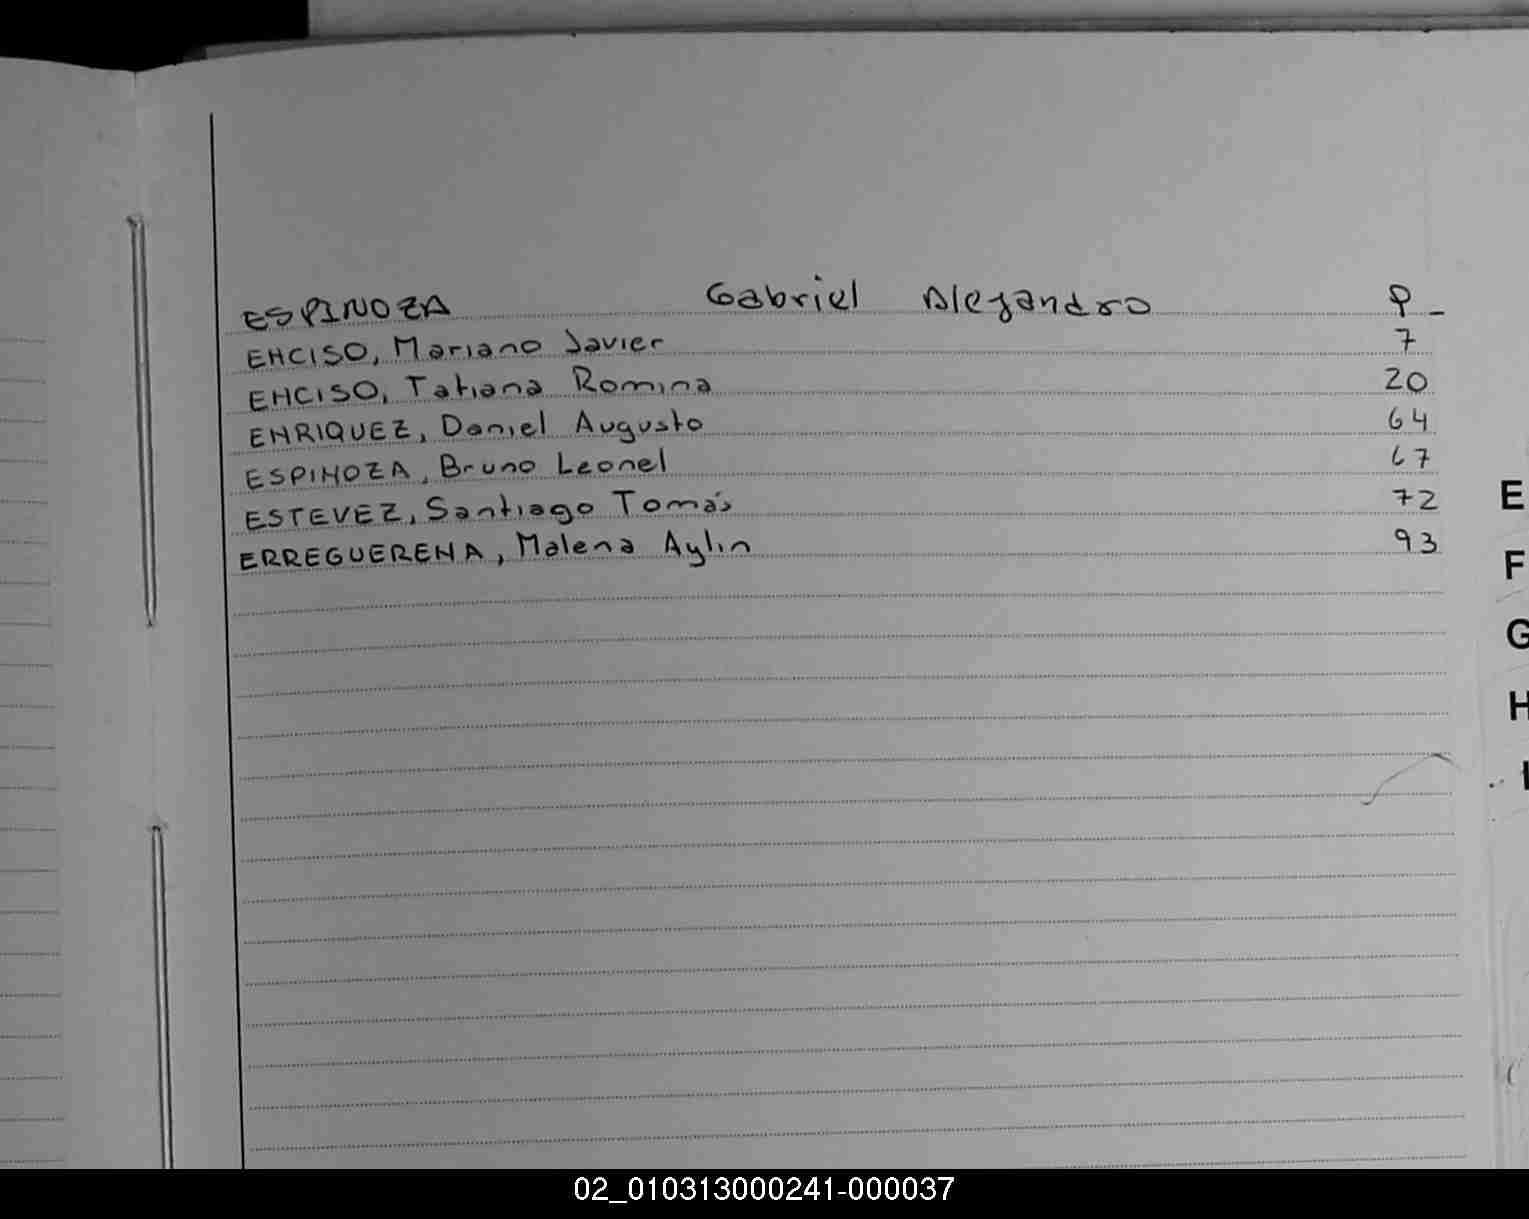 ESPINOZA Gabriel Alejandro P_
ENCISO, Mariano Javier 7
ENCISO, Tatiana Romina 20
ENRIQUEZ, Daniel Augusto 64
ESPINOZA, Bruno Leonel 67
ESTEVEZ, Santiago Tomás 72
ERREGUERENA, Malena Aylin 93
E
F
G
H
02_010313000241-000037